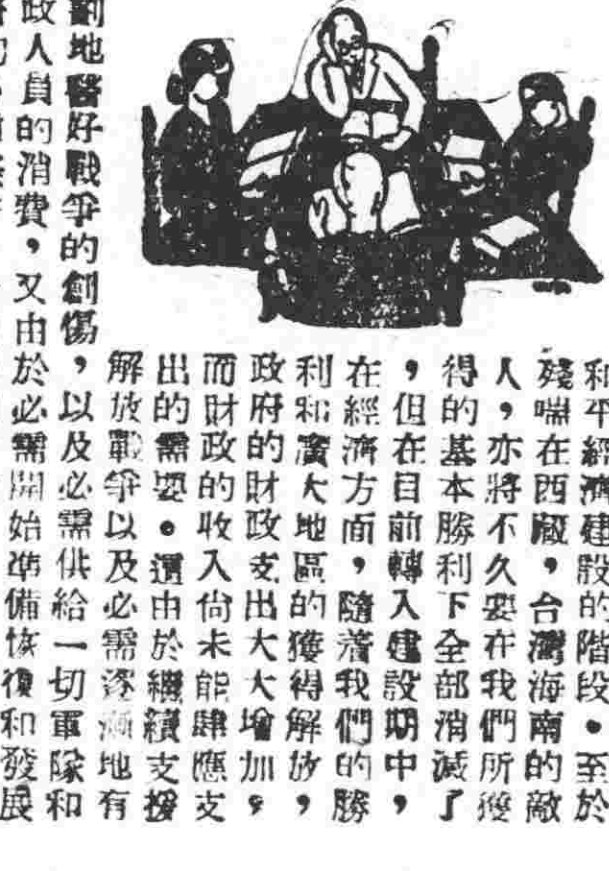 和平經濟建設的階段。至於
殘喘在西藏，台灣海南的敵
人，亦將不久要在我們所獲
得的基本勝利下全部消滅了
，但在目前轉入建設期中，
在經濟方面，隨着我們的勝
利和廣大地區的獲得解放，
政府的財政支出大大增加，
而財政的收入尚未能肆應支
出的需要。還由於繼續支援
解放戰爭以及必需逐漸地有
劃地醫好戰爭的創傷，以及必需供給一切軍隊和
政人員的消費，又由於必需開始準備恢復和發展